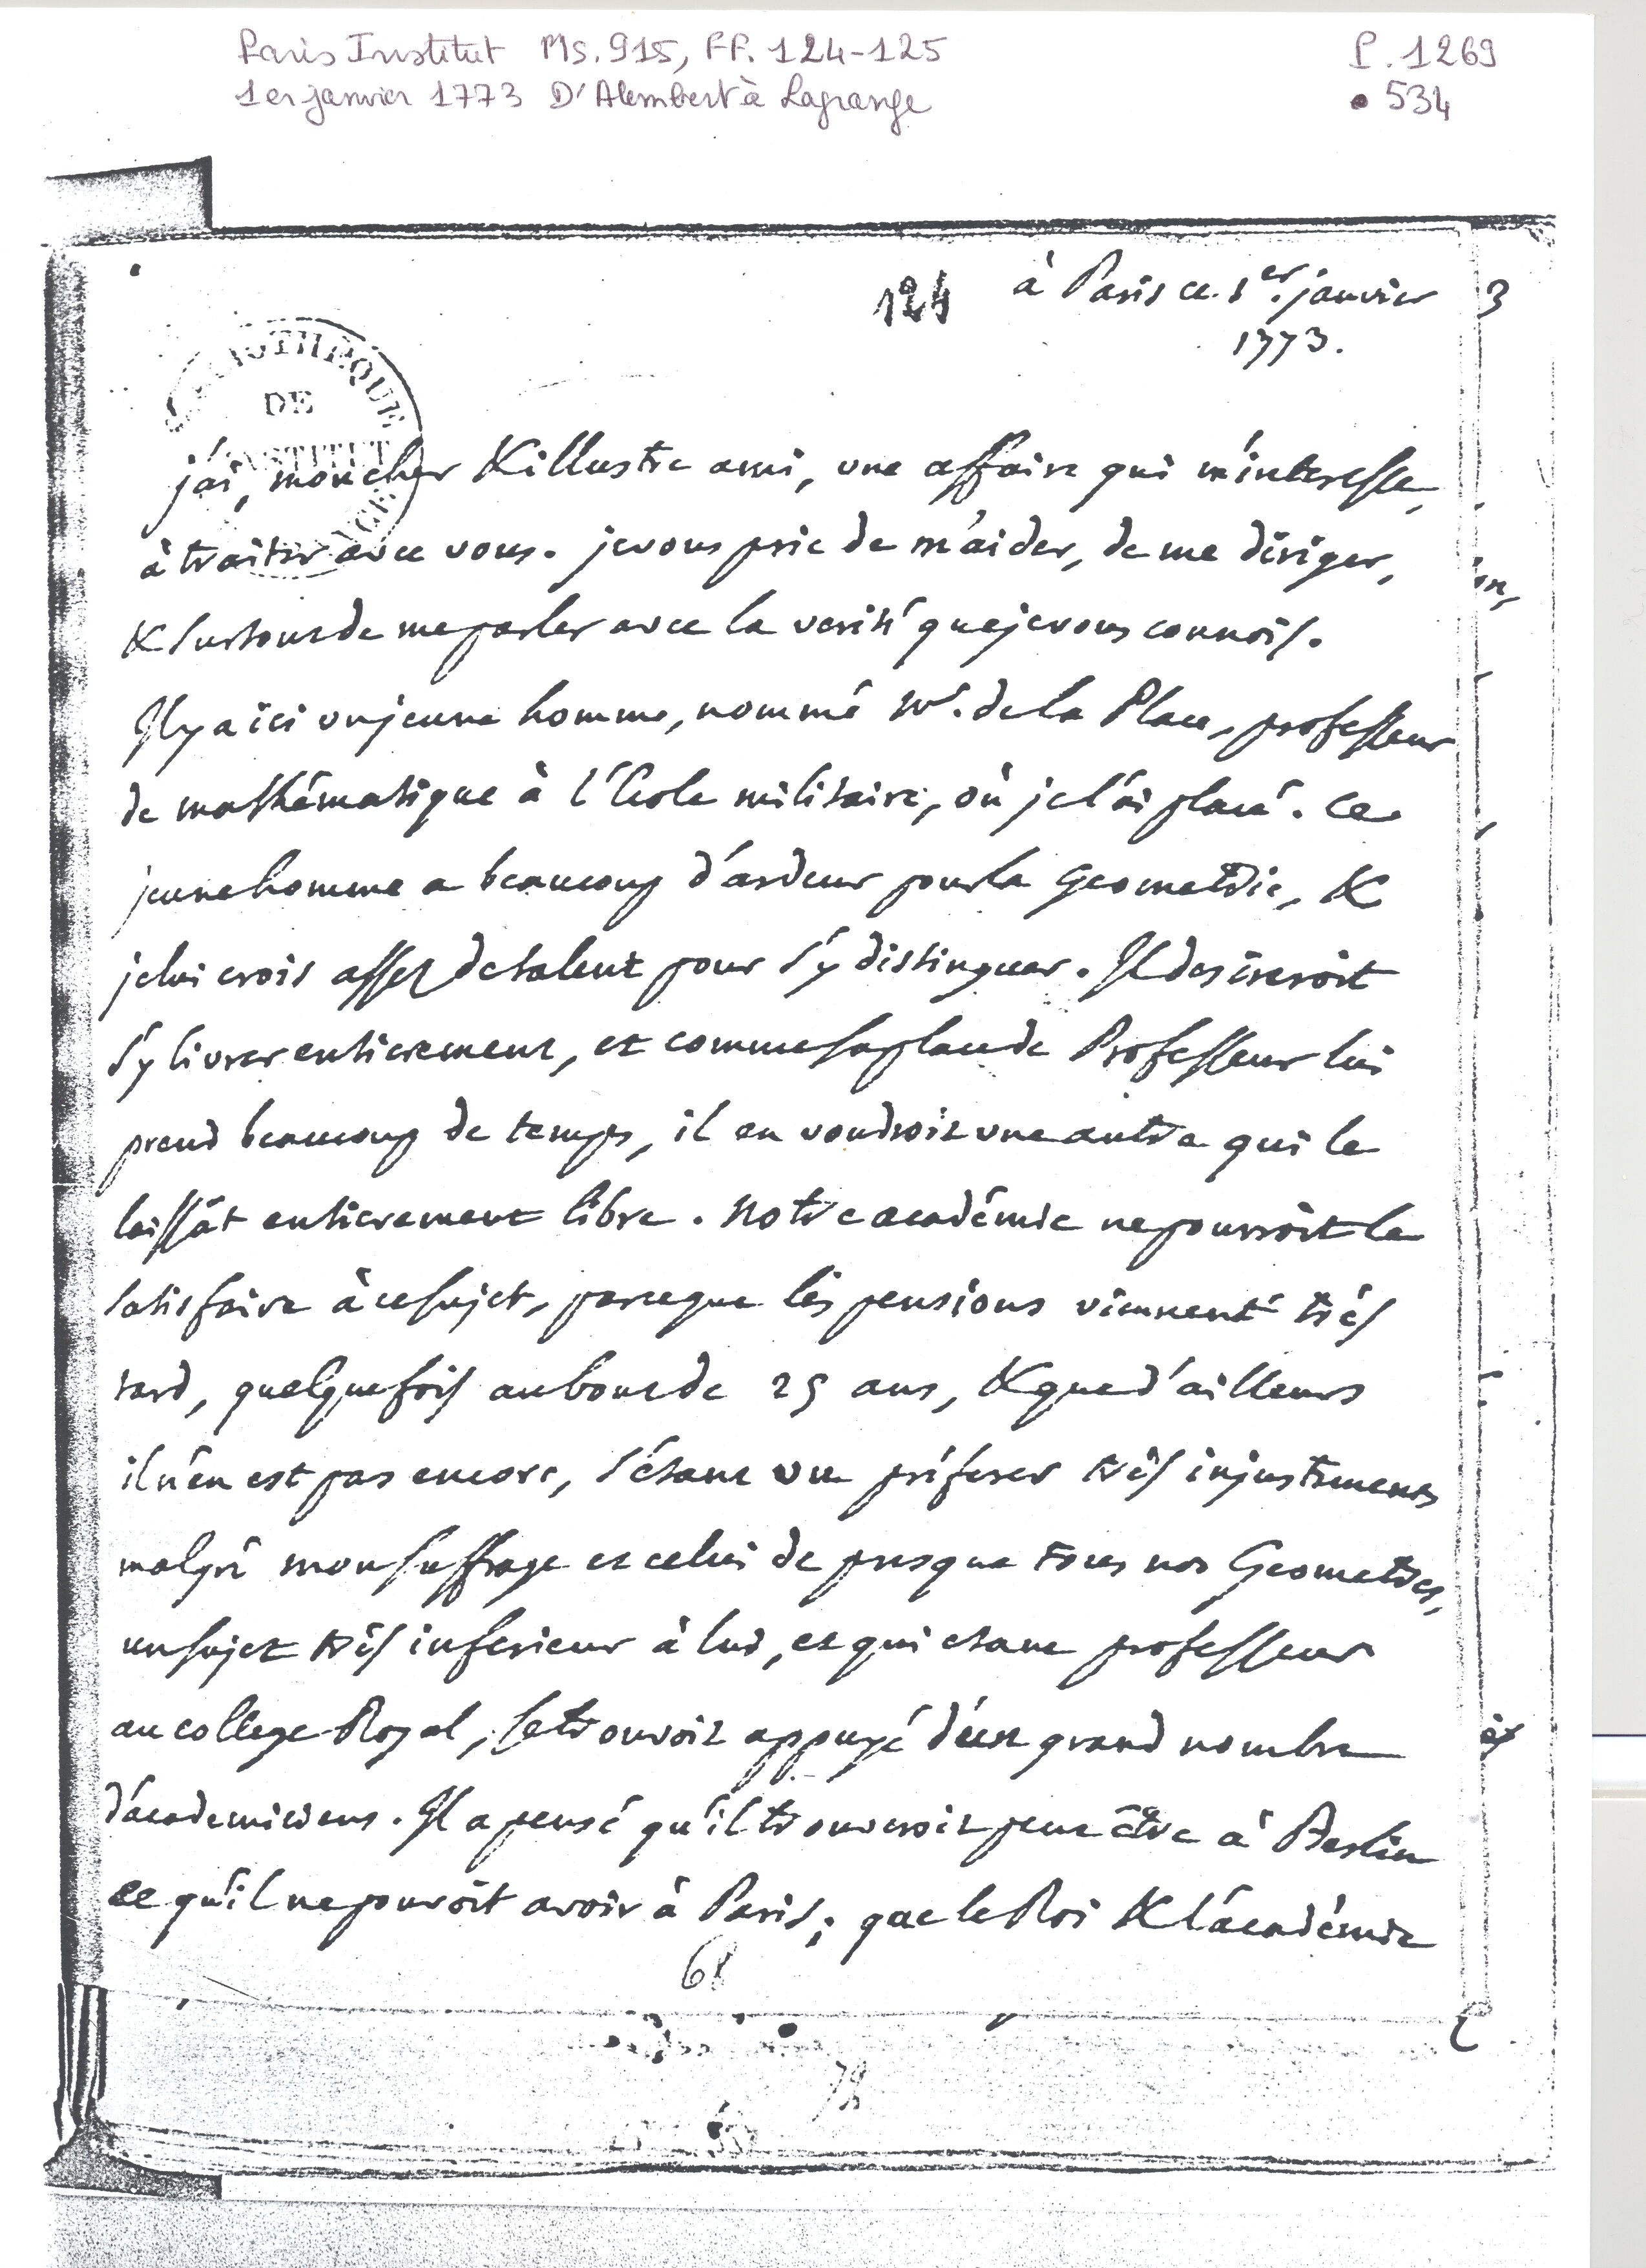 Paris Institut MS. 915, FF. 124-125
P. 1269
1er janvier 1773 D'Alembert à Lagrange
• 534
124 à Paris ce 1er. janvier
3
1773.
BIBLIOTHEQUE
DE
L'INSTITUT
j'ai, mon cher & illustre ami, une affaire qui m'interesse,
à traiter avec vous. je vous prie de m'aider, de me diriger,
on,
& surtout de me parler avec la verité que je vous connois.
Il y a ici un jeune homme, nommé Mr. de la Place, professeur
de mathématique à l'École militaire, où je l'ai placé. Ce
jeune homme a beaucoup d'ardeur pour la Geometrie, &
je lui crois assez de talent pour s'y distinguer. Il desireroit
s'y livrer entierement, et comme sa place de Professeur lui
prend beaucoup de temps, il en voudroit une autre qui le
laissât entierement libre. Notre académie ne pourroit le
satisfaire à ce sujet, parceque les pensions viennent très
tard, quelquefois au bout de 25 ans, & que d'ailleurs
il n'en est pas encore, s'étant vu préferer très injustement
malgré mon suffrage et celui de presque tous nos Geometres,
un sujet très inferieur à lui, et qui etant professeur
au college Royal, se trouvoit appuyé d'un grand nombre
d'academiciens. Il a pensé qu'il trouveroit peut être à Berlin
ce qu'il ne pouvoit avoir à Paris; que le Roi & l'académie
68
78